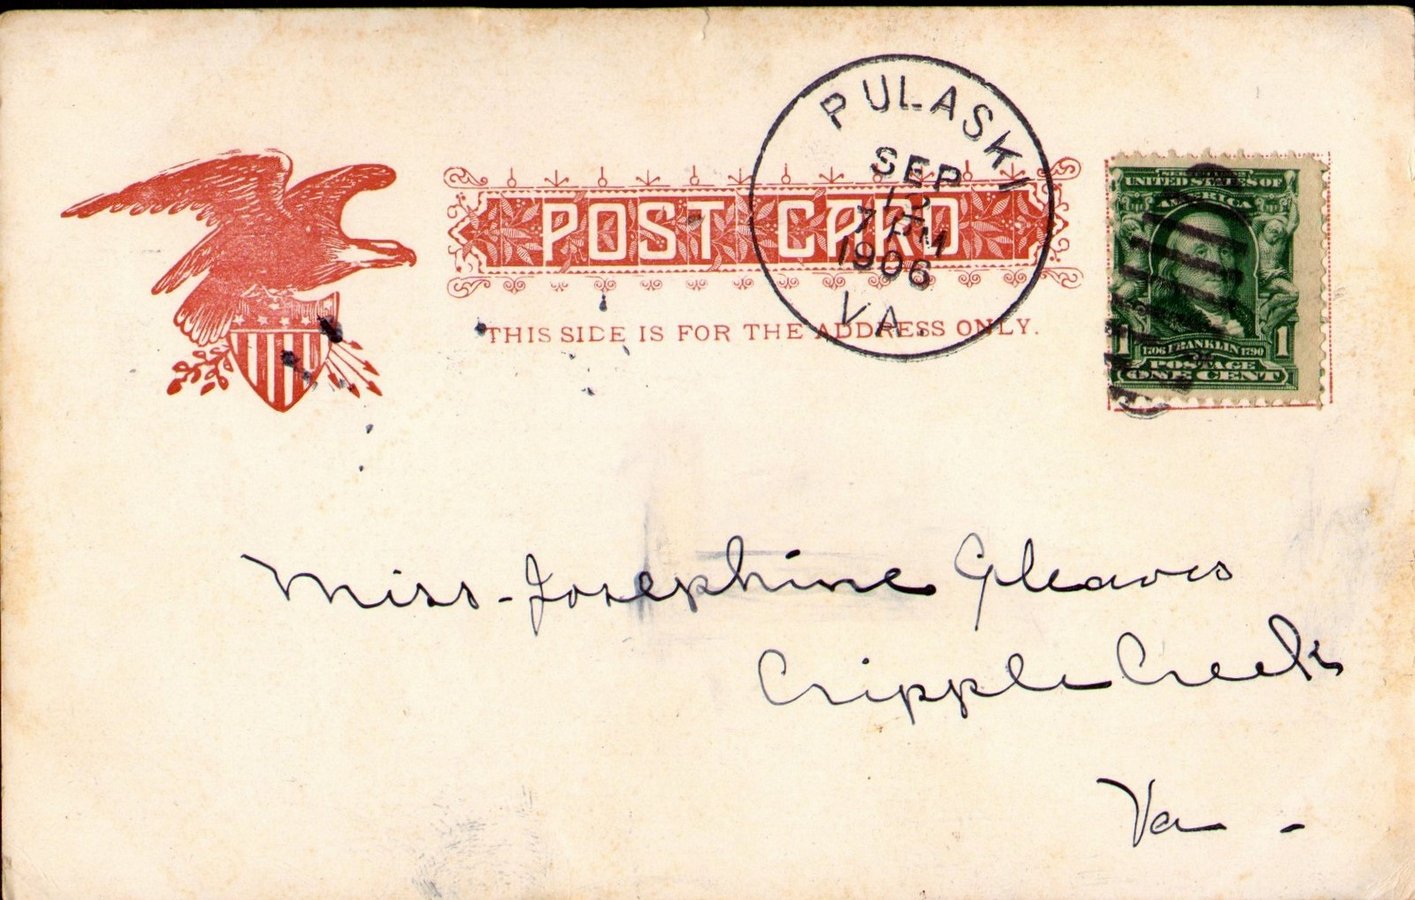 PULASKI
SEP
12
7 PM
1906
VA.
POST CARD
THIS SIDE IS FOR THE ADDRESS ONLY.
UNITED STATES OF
AMERICA
1 1706 FRANKLIN 1790 1
POSTAGE
ONE CENT
Miss Josephine Gleaves
Cripple Creek
Va